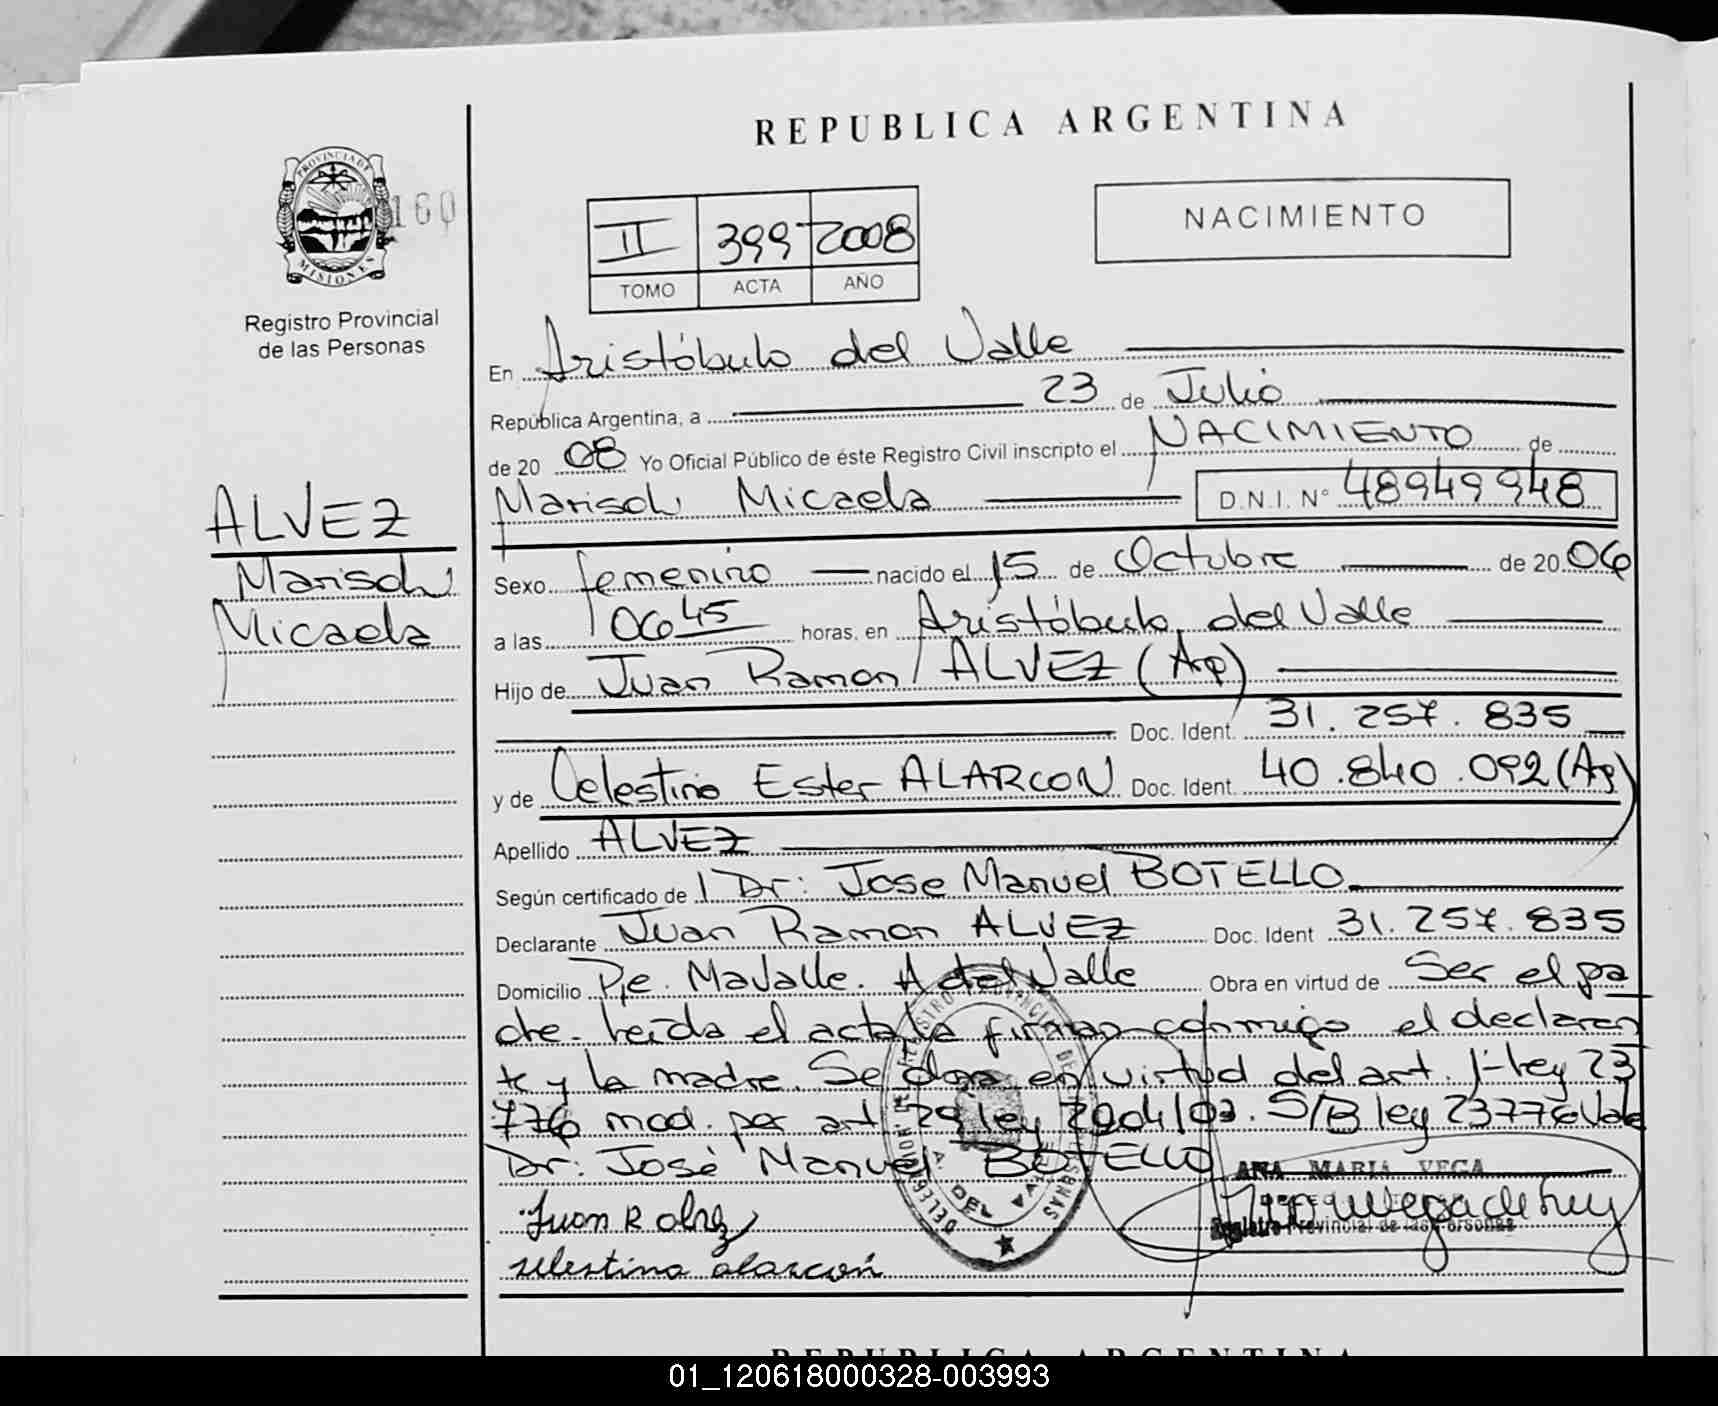 REPUBLICA ARGENTINA
PROVINCIA DE MISIONES
160
Registro Provincial
de las Personas
II 399 2008
TOMO ACTA AÑO
NACIMIENTO
En Aristóbulo del Valle
República Argentina, a 23 de Julio
de 20 08 Yo Oficial Público de éste Registro Civil inscripto el NACIMIENTO de
Marisol Micaela D.N.I. N° 48949948
ALVEZ
Marisol
Micaela
Sexo femenino nacido el 15 de Octubre de 20 06
a las 06 45 horas, en Aristóbulo del Valle
Hijo de Juan Ramon ALVEZ (Ap)
Doc. Ident. 31.257.835
y de Celestina Ester ALARCON Doc. Ident. 40.840.092 (Ap)
Apellido ALVEZ
Según certificado de l Dr: Jose Manuel BOTELLO
Declarante Juan Ramon ALVEZ Doc. Ident 31.257.835
Domicilio Pje. Mavalle. A del Valle Obra en virtud de Ser el pa
dre. Leída el acta la firman conmigo el declaran
te y la madre. Se obra en virtud del art. 1- ley 23
776 mod. por art. 29 ley 2904/03. S/B ley 23776 Vale
Dr: José Manuel BOTELLO
ANA MARIA VEGA
Registro Provincial de las Personas
Juan R alvez
selestina alarcón
REPUBLICA ARGENTINA
01_120618000328-003993